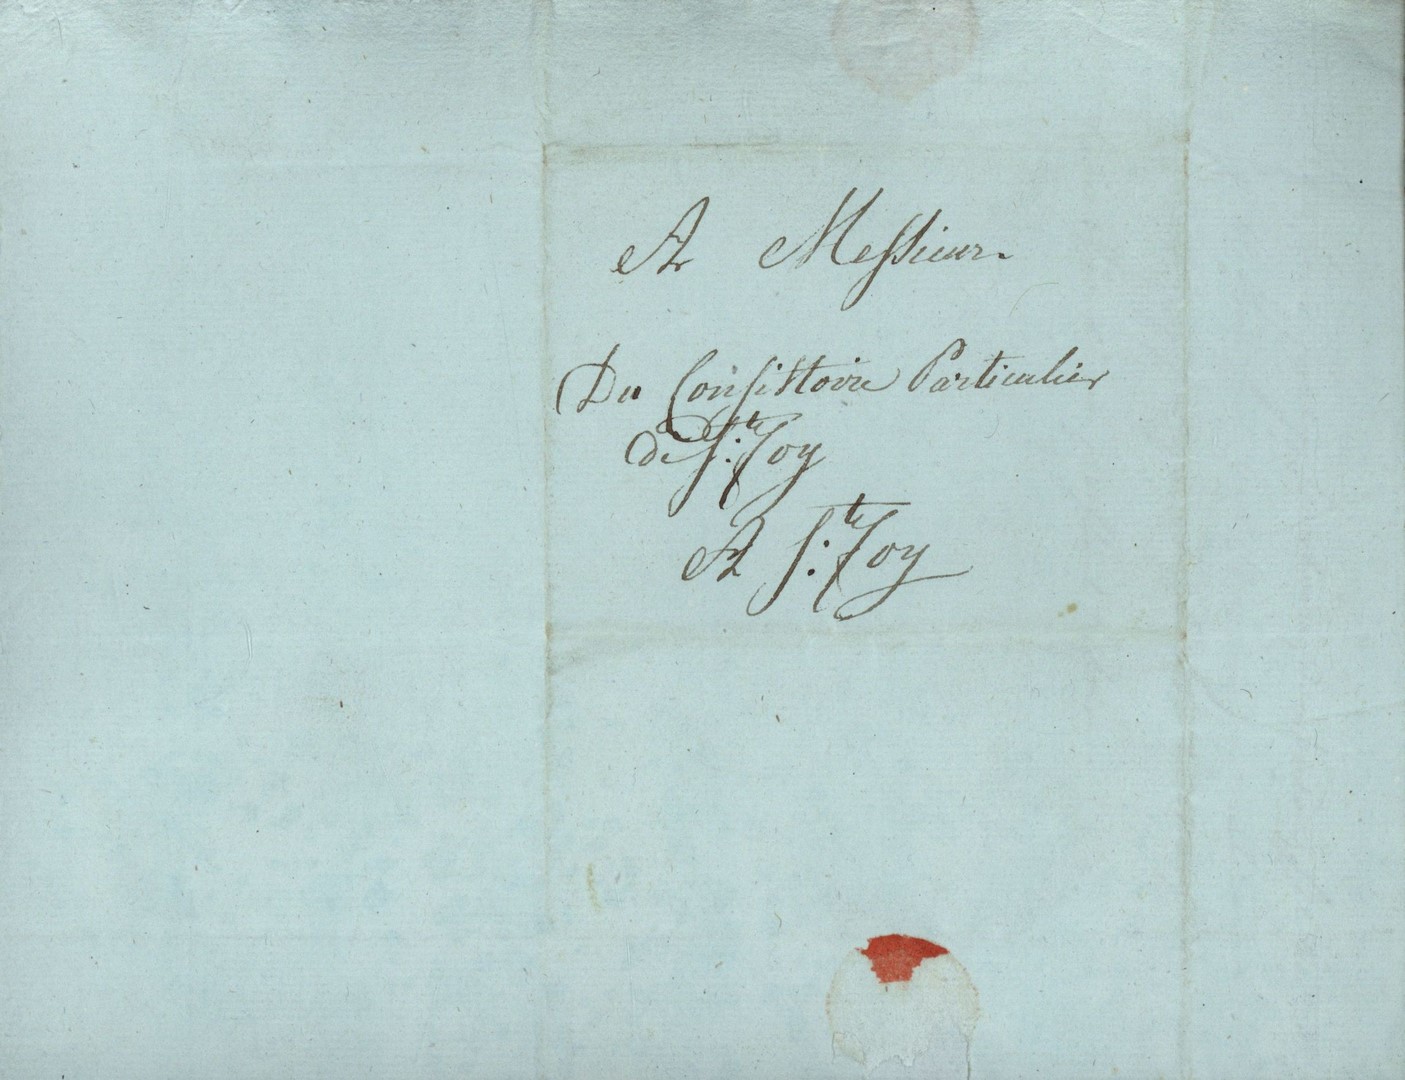 A Messieur
Du Consistoire Particulier
de Ste: Foy
A Ste: Foy